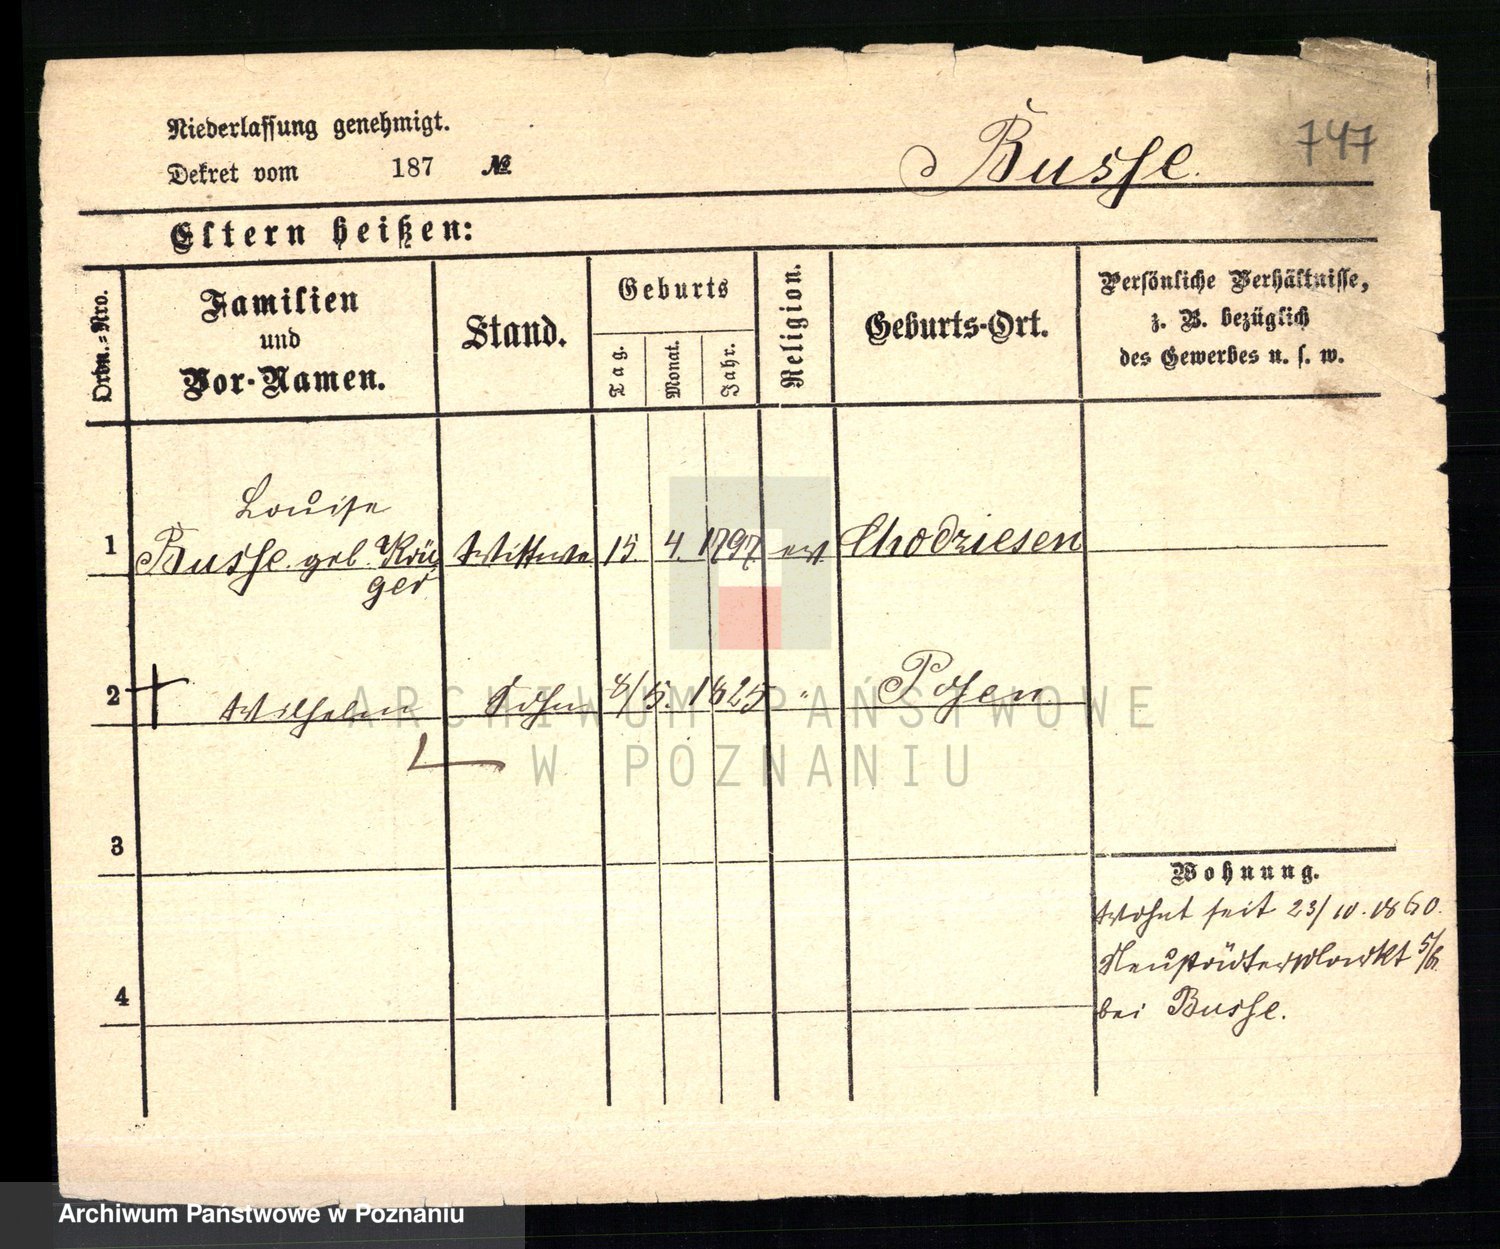 Niederlassung genehmigt.
Dekret vom 187 №
Busse.
747
Eltern heißen:
Ordn.-Nro.
Familien
und
Vor-Namen.
Stand.
Geburts
Tag.
Monat.
Jahr.
Religion.
Geburts-Ort.
Persönliche Verhältnisse,
z. B. bezüglich
des Gewerbes u. s. w.
Louise
1 Busse geb. Krü
ger Wittwe 15. 4. 1797 ev. Chodziesen
2 † Wilhelm Sohn 8/ 5. 1825 " Posen
3
4
Wohnung.
Wohnt seit 23/10. 1860.
Neustädtermarkt 5/6.
bei Busse.
ARCHIWUM PAŃSTWOWE
W POZNANIU
Archiwum Państwowe w Poznaniu